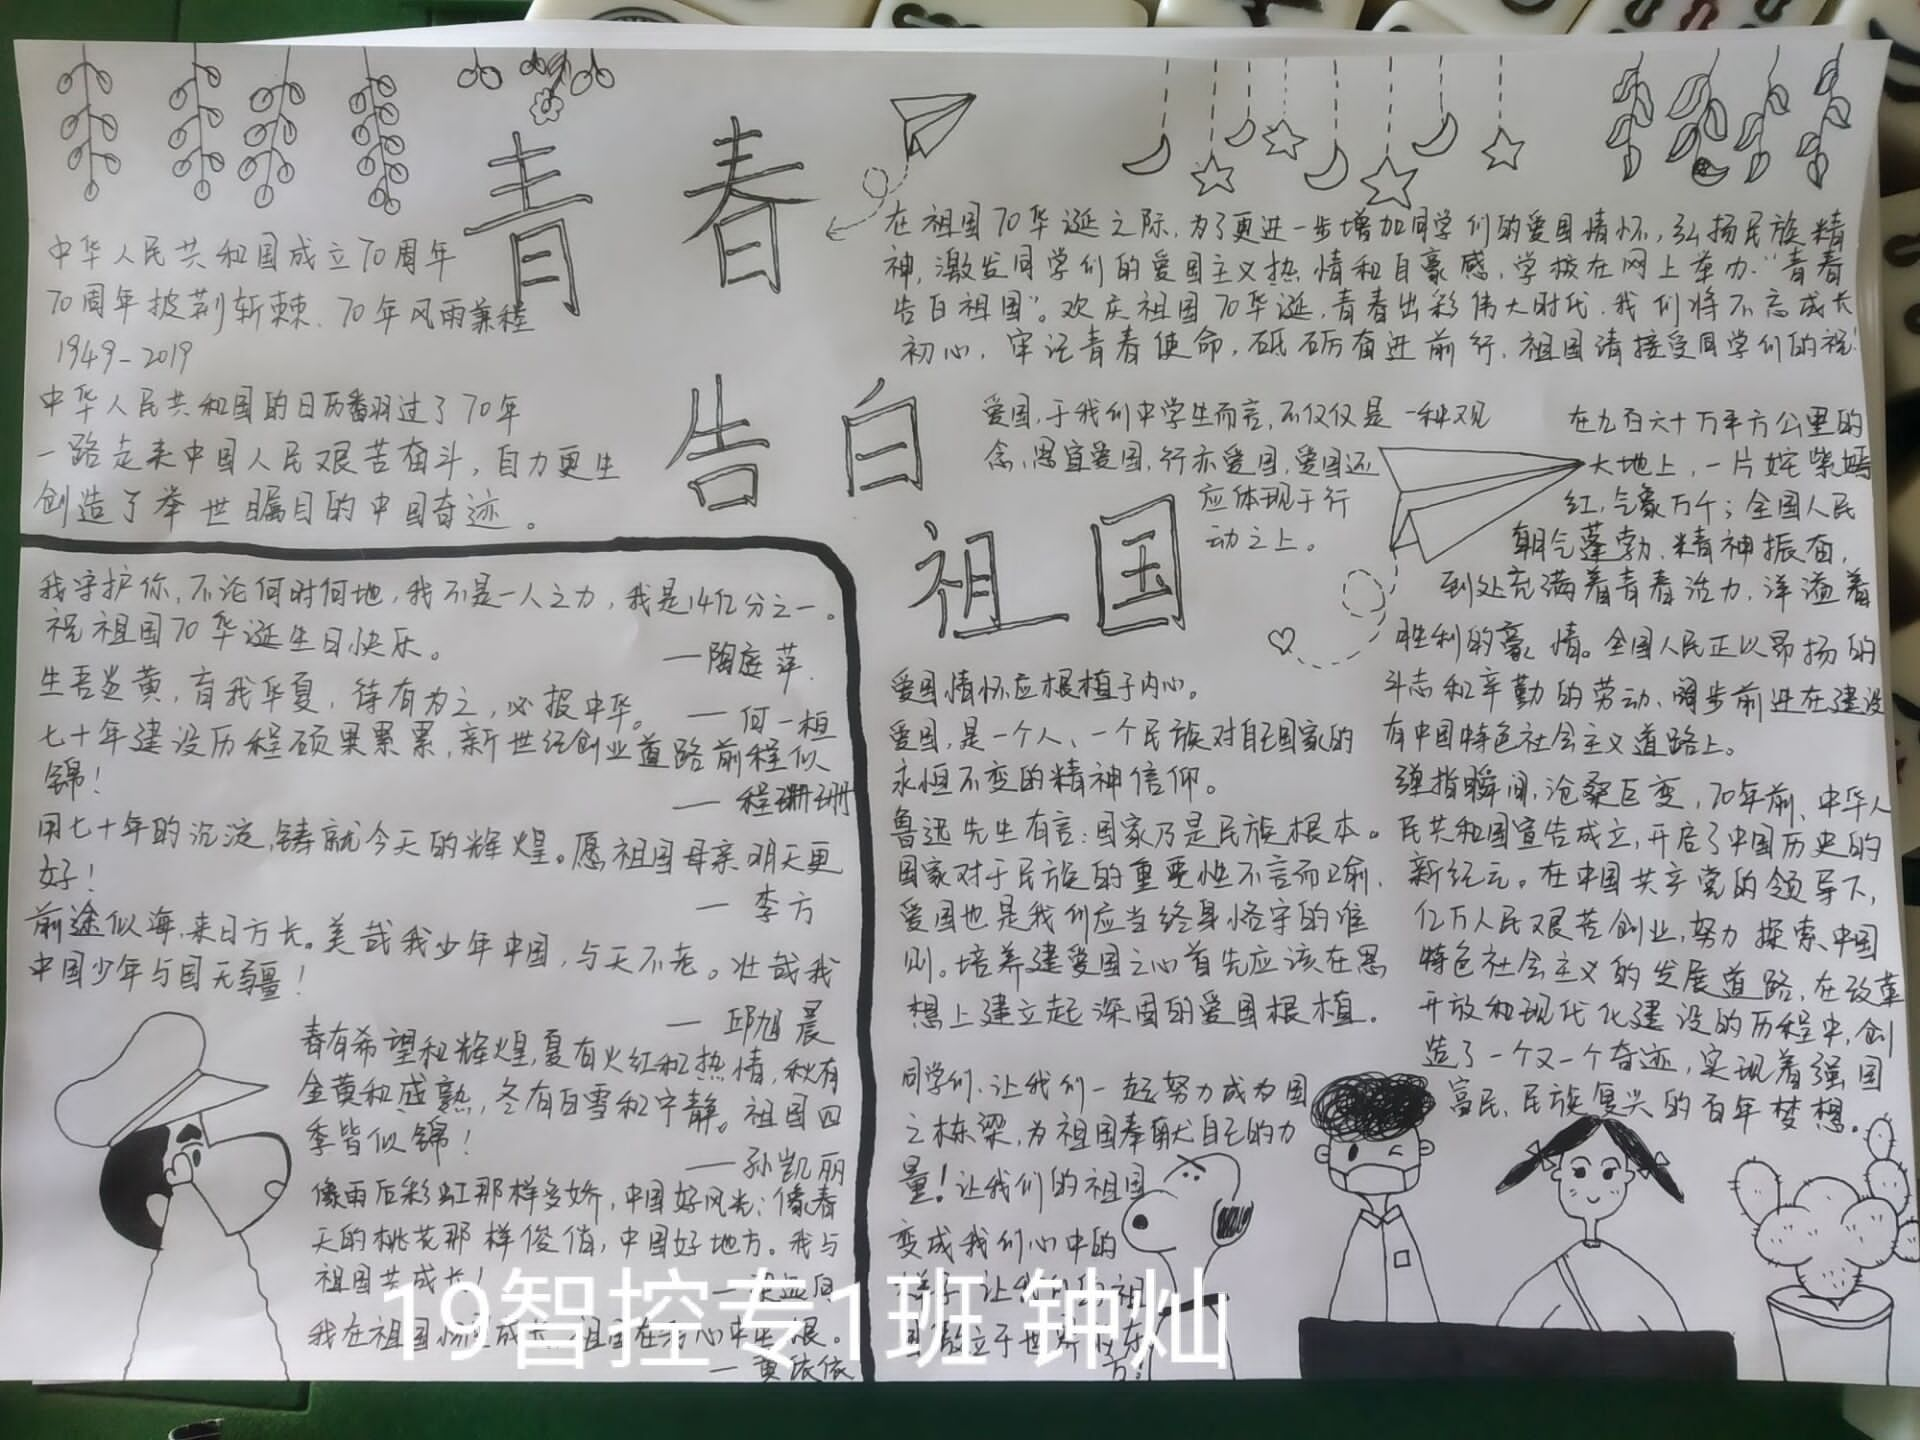 青春
告白
祖国
中华人民共和国成立70周年
70周年披荆斩棘、70年风雨兼程
1949-2019
中华人民共和国的日历翻过了70年
一路走来中国人民艰苦奋斗，自力更生
创造了举世瞩目的中国奇迹。
我守护你，不论何时何地，我不是一人之力，我是14亿分之一。
祝祖国70华诞生日快乐。
—陶庭萍
生吾炎黄，育我华夏，待有为之，必报中华。
—何一桓
七十年建设历程硕果累累，新世纪创业道路前程似
锦！
—程珊珊
用七十年的沉淀，铸就今天的辉煌。愿祖国母亲明天更
好！
—李方
前途似海，来日方长。美哉我少年中国，与天不老。壮哉我
中国少年与国无疆！
—邱旭晨
春有希望和辉煌，夏有火红和热情，秋有
金黄和成熟，冬有白雪和宁静。祖国四
季皆似锦！
—孙凯丽
像雨后彩虹那样多娇，中国好风光；像春
天的桃花那样俊俏，中国好地方。我与
祖国共成长！
我在祖国
心中
根。
—黄依依
在祖国70华诞之际，为了更进一步增加同学们的爱国情怀，弘扬民族精
神，激发同学们的爱国主义热情和自豪感，学校在网上举办“青春
告白祖国”。欢庆祖国70华诞，青春出彩伟大时代，我们将不忘成长
初心，牢记青春使命，砥砺奋进前行，祖国请接受同学们的祝！
爱国，于我们中学生而言，不仅仅是一种观
念，思宜爱国，行亦爱国，爱国还
应体现于行
动之上。
爱国情怀应根植于内心。
爱国，是一个人、一个民族对自己国家的
永恒不变的精神信仰。
鲁迅先生有言：国家乃是民族根本。
国家对于民族的重要性不言而喻，
爱国也是我们应当终身恪守的准
则。培养建爱国之心首先应该在思
想上建立起深固的爱国根植。
同学们、让我们一起努力成为国
之栋梁，为祖国奉献自己的力
量！让我们的祖国
变成我们心中的
样子，让我们的祖
国敖立于世界的东
方！
在九百六十万平方公里的
大地上，一片姹紫嫣
红，气象万千；全国人民
朝气蓬勃、精神振奋，
到处充满着青春活力，洋溢着
胜利的豪情。全国人民正以昂扬的
斗志和辛勤的劳动、阔步前进在建设
有中国特色社会主义道路上。
弹指瞬间，沧桑巨变，70年前，中华人
民共和国宣告成立，开启了中国历史的
新纪元。在中国共产党的领导下，
亿万人民艰苦创业，努力探索中国
特色社会主义的发展道路，在改革
开放和现代化建设的历程中，创
造了一个又一个奇迹，实现着强国
富民、民族复兴的百年梦想。
19智控专1班 钟灿